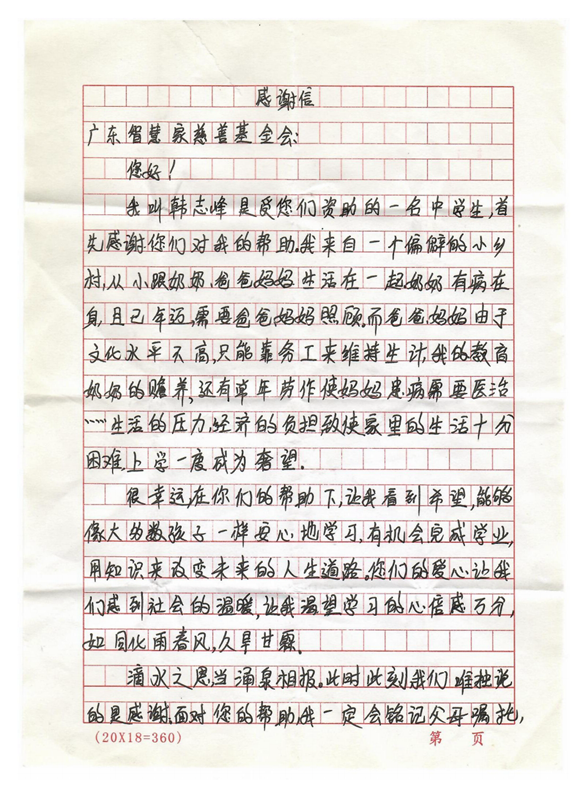 感谢信
广东智慧家慈善基金会:
您好!
我叫韩志峰是受您们资助的一名中学生,首
先感谢你们对我的帮助。我来自一个偏僻的小乡
村,从小跟奶奶爸爸妈妈生活在一起奶奶有病在
身,且已年迈,需要爸爸妈妈照顾。而爸爸妈妈由于
文化水平不高,只能靠务工来维持生计,我的教育
奶奶的赡养,还有常年劳作使妈妈患病需要医治
……生活的压力,经济的负担致使家里的生活十分
困难上学一度成为奢望.
很幸运,在你们的帮助下,让我看到希望,能够
像大多数孩子一样安心地学习,有机会完成学业,
用知识来改变未来的人生道路。您们的爱心让我
们感到社会的温暖,让我渴望学习的心倍感万分,
如同化雨春风,久旱甘霖.
滴水之恩,当涌泉相报。此时此刻我们唯独说
的是感谢.面对你的帮助,我一定会铭记父母嘱托,
(20X18=360) 第 页